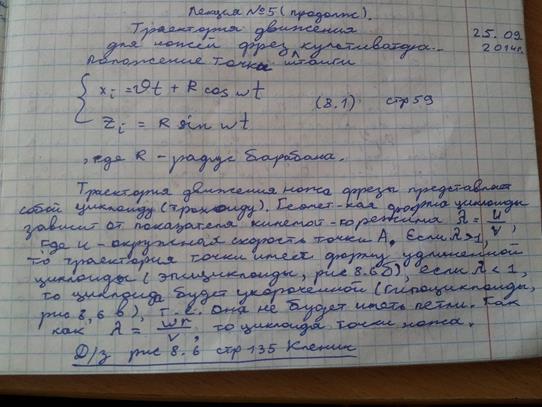 Лекция №5 (продолж).
Траектория движения
для ножей фрез культиватора.
25.09
2014г.
Положение точки штанги
xi = ϑt + R cos ωt
(8.1) стр 59
zi = R sin ωt
, где R - радиус барабана.
Траектория движения ножа фрезы представляет
собой циклоиду (трохоиду). Геомет-кая форма циклоиды
зависит от показателя кинемат-го режима λ = u/v,
где u - окружная скорость точки А. Если λ>1,
то траектория точки имеет форму удлиненной
циклоиды (эпициклоиды, рис 8.6 б), если λ < 1,
то циклоида будет укороченной (гипоциклоиды,
рис 8,6 в), т.е. она не будет иметь петли. Так
как λ = ωr/v, то циклоида точки ножа.
Д/з рис 8.6 стр 135 Кленин